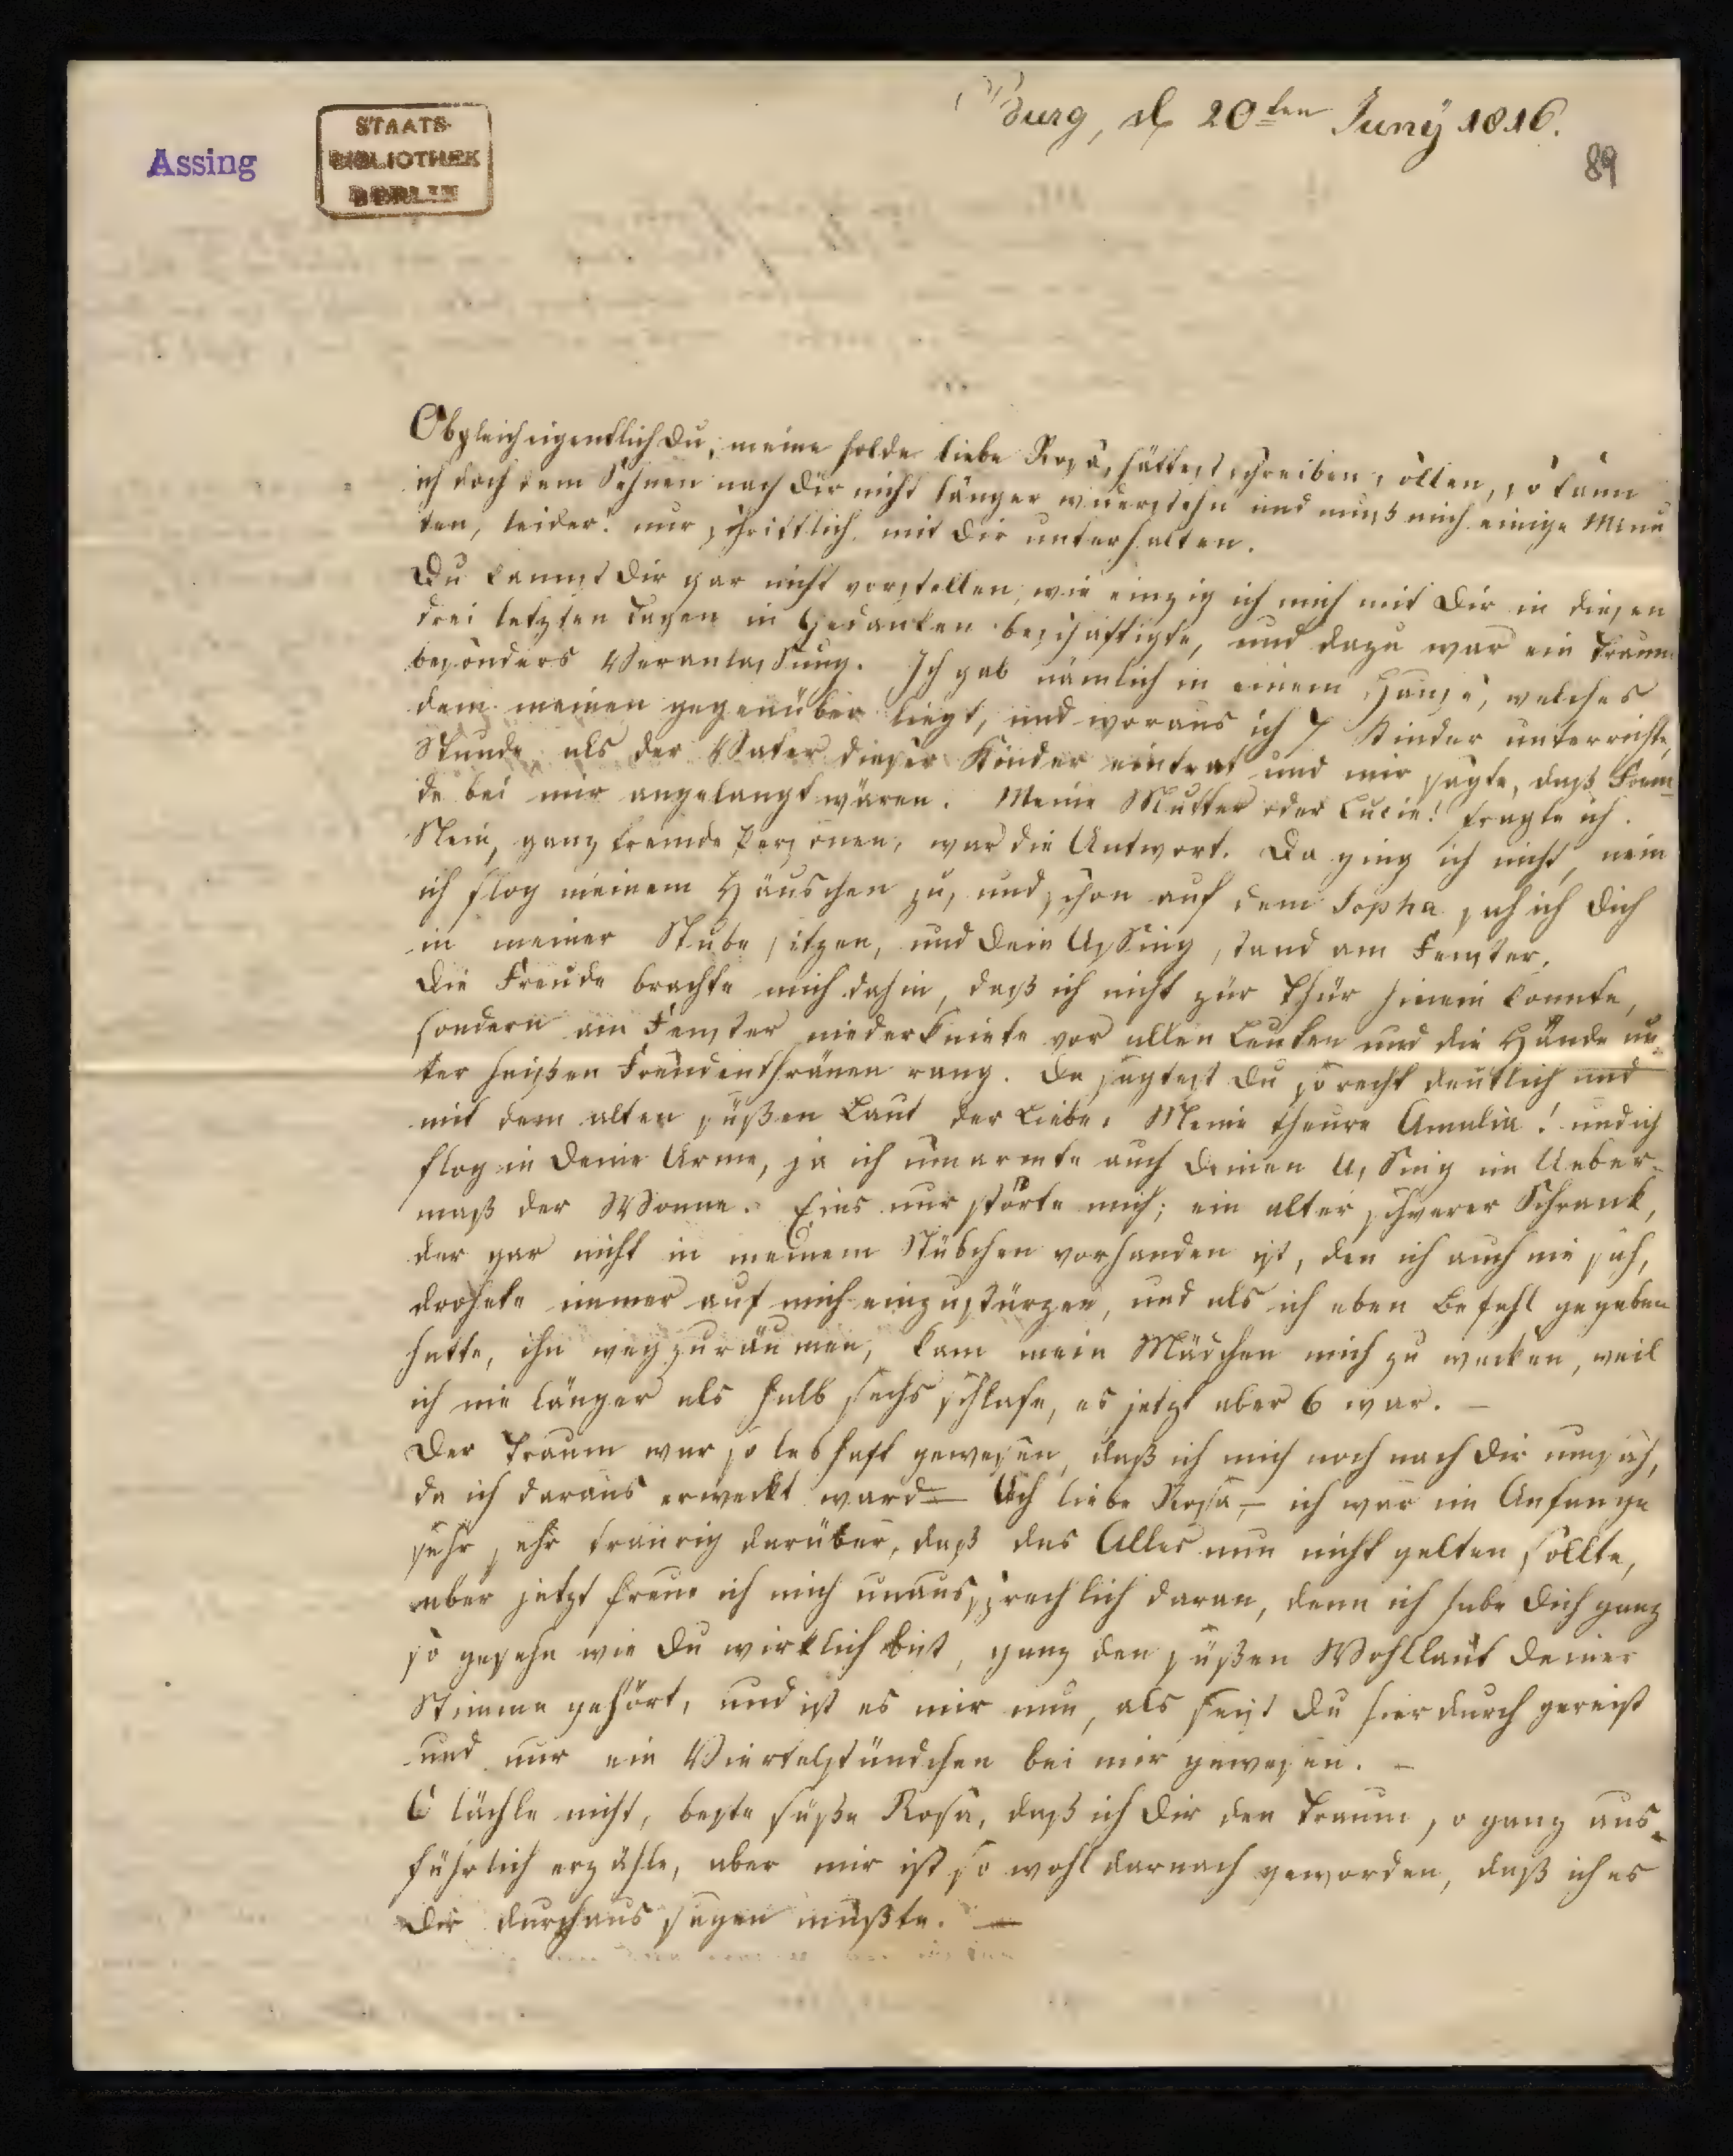 Burg, d 20ten Juny 1816.
89
Assing
STAATS-
BIBLIOTHEK
BERLIN
Obgleich eigendlich Du, meine holde liebe Rosa, hättest schreiben sollen, so kann
ich doch dem Sehnen nach Dir nicht länger wiederstehn und muß mich einige Minu
ten, leider! nur schriftlich mit Dir unterhalten.
Du kannst Dir gar nicht vorstellen, wie einzig ich mich mit Dir in diesen
drei letzten Tagen in Gedanken beschäftigte, und dazu war ein Traum
besonders Veranlassung. Ich gab nämlich in einem Hause, welches
dem meinen gegenüber liegt, und woraus ich 7 Kinder unterrichte,
Stunde als der Vater dieser Kinder eintrat und mir sagte, daß Frem-
de bei mir angelangt wären. Meine Mutter oder Lucie! fragte ich.
Nein, ganz fremde Personen, war die Antwort. Da ging ich nicht, nein
ich flog meinem Häuschen zu, und schon auf dem Sopha sah ich Dich
in meiner Stube sitzen, und Dein Assing stand am Fenster.
Die Freude brachte mich dahin, daß ich nicht zur Thür hinein konnte,
sondern am Fenster niederkniete vor allen Leuten und die Hände un-
ter heißen Freudenthränen rang. Da sagtest Du so recht deutlich und
mit dem alten süßen Laut der Liebe: Meine theure Amalia! und ich
flog in Deine Arme, ja ich umarmte auch Deinen Assing im Ueber-
maß der Wonne. Eins nur störte mich; ein alter schwerer Schrank,
der gar nicht in meinem Stübchen vorhanden ist, den ich auch nie sah,
drohete immer auf mich einzustürzen, und als ich eben Befehl gegeben
hatte, ihn wegzuräumen, kam mein Mädchen mich zu wecken, weil
ich nie länger als halb sechs schlafe, es jetzt aber 6 war. –
Der Traum war so lebhaft gewesen, daß ich mich noch nach Dir umsah,
da ich daraus erweckt ward – Ach liebe Rosa – ich war im Anfange
sehr sehr traurig darüber, daß das Alles nun nicht gelten sollte,
aber jetzt freue ich mich unaussprechlich daran, denn ich habe Dich ganz
so gesehn wie Du wirklich bist, ganz den süßen Wohllaut Deiner
Stimme gehört, und ist es mir nun, als seist Du hier durch gereist
und nur ein Viertelstündchen bei mir gewesen. –
O lächle nicht, beste süße Rosa, daß ich Dir den Traum so ganz aus-
führlich erzähle, aber mir ist so wohl darnach geworden, daß ich es
Dir durchaus sagen mußte. —